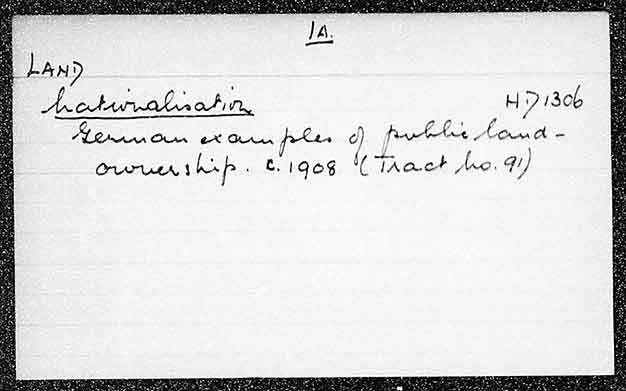 1A.
LAND
Nationalisation HD1306
German examples of public land-
ownership. c.1908 (Tract No. 91)